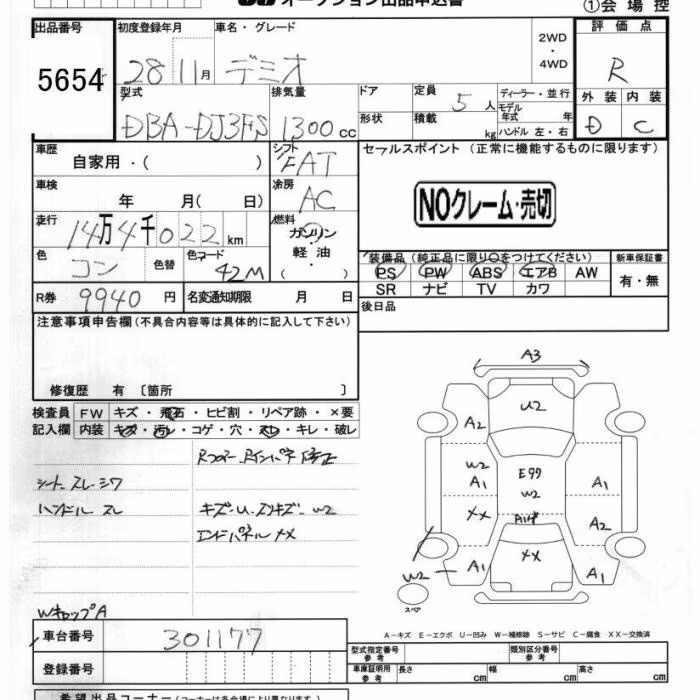 オークション出品申込書
①会場控
出品番号 初度登録年月 車名・グレード 2WD・4WD 評価点
5654 28 11月 デミオ R
型式 排気量 ドア 定員 5人 ディーラー・並行 外装 内装
DBA-DJ3FS 1300cc 形状 積載 kg モデル年式 年 ハンドル 左・右 D C
車歴 シフト セールスポイント (正常に機能するものに限ります)
自家用・( ) FAT
車検 冷房
年 月( 日) AC NOクレーム・売切
走行 燃料
14万4千022km ガソリン・軽油・( )
色 色替 色コード 装備品(純正品に限り○をつけてください) 新車保証書
コン 42M PS PW ABS エアB AW 有・無
SR ナビ TV カワ
R券 9940円 名変通知期限 月 日 後日品
注意事項申告欄(不具合内容等は具体的に記入して下さい)
修復歴 有 〔箇所 〕
検査員 FW キズ・飛石・ヒビ割・リペア跡・×要
記入欄 内装 キズ・汚レ・コゲ・穴・スレ・キレ・破レ
シート スレ・シワ
ハンドル スレ
キズ・U
エンドパネル XX
WキャップA
A3
U2
A2
W2
A1
XX
E99
W2
A1
A2
XX
A1
A1
W2
スペア
A-キズ E-エクボ U-凹み W-補修跡 S-サビ C-腐食 XX-交換済
車台番号 301177 型式指定番号 参考 類別区分番号 参考
登録番号 車庫証明用 参考 長さ cm 幅 cm 高さ cm
希望出品コーナー(コーナーは各会場により異なります)